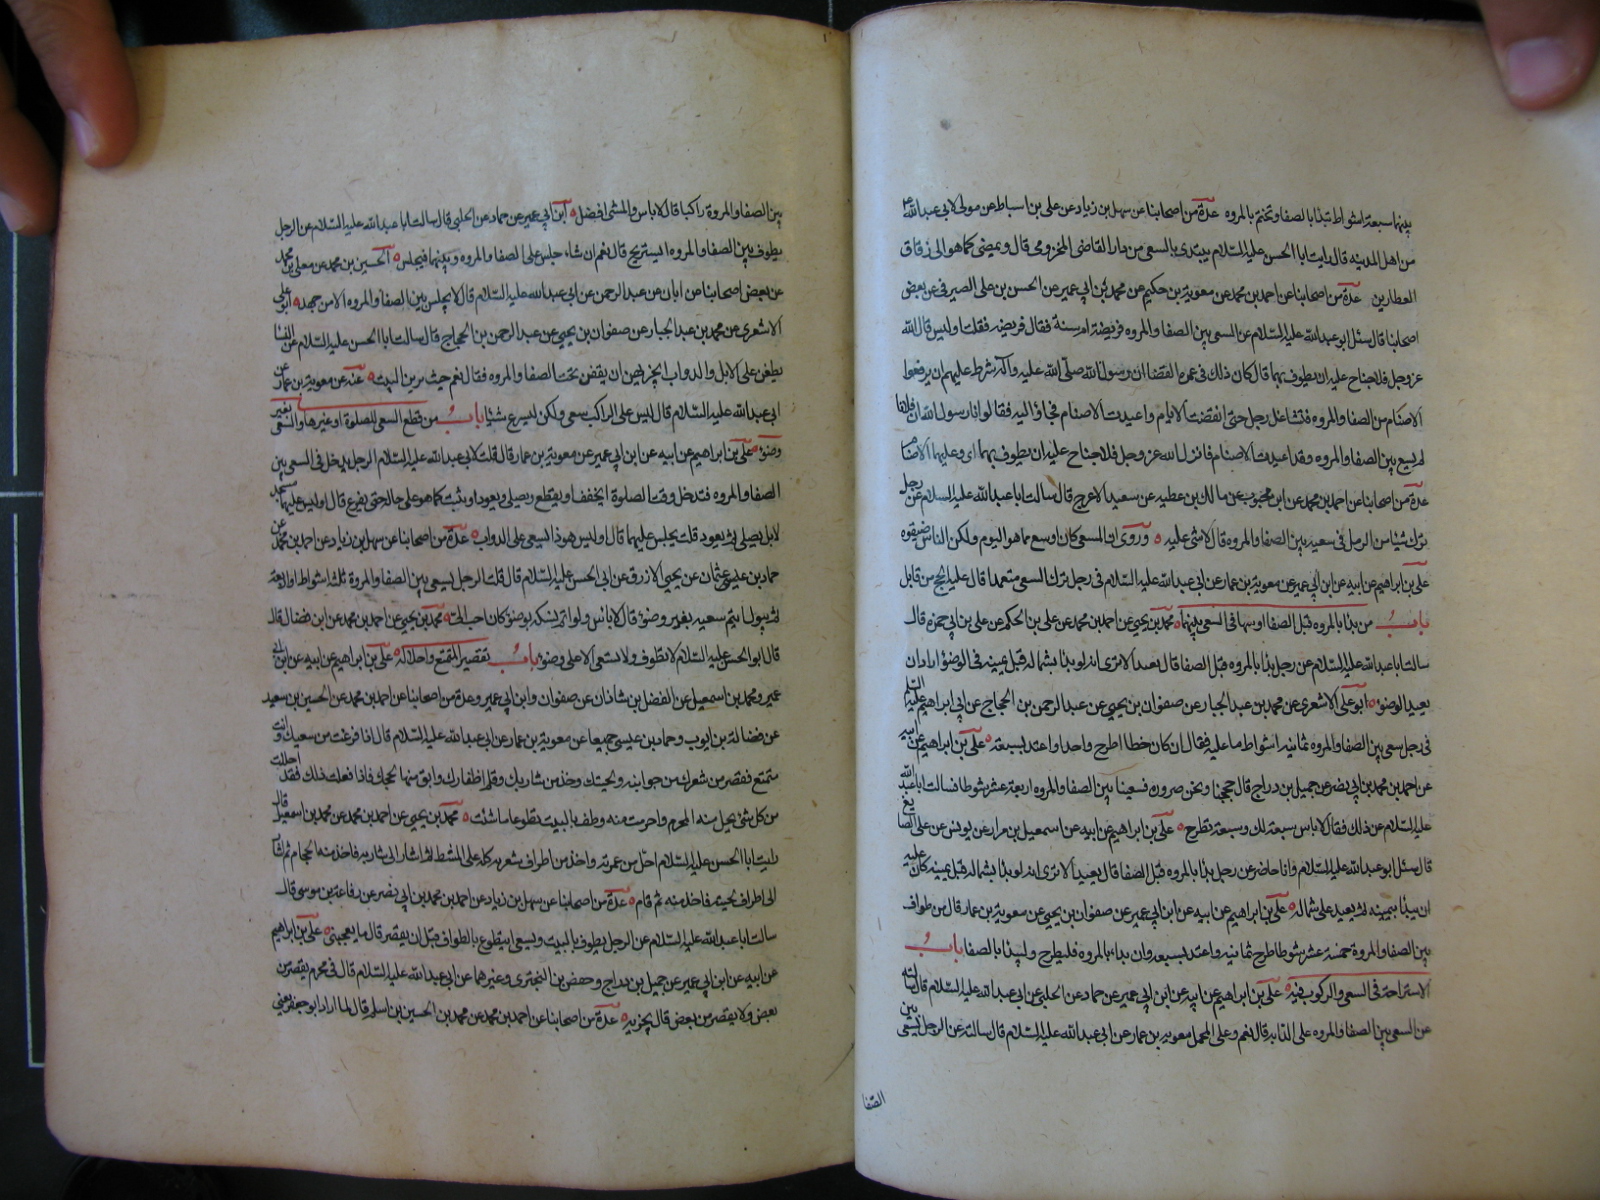 بينهما سبعة اشواط تبدا بالصفا وتختم بالمروه عدة من اصحابنا عن سهل بن زياد عن علي بن اسباط عن مولى لابي عبدالله ع
من اهل المدينه قال رايت ابا الحسن عليه السلام يبتدى بالسعى من دار القاضى المخزومى قال ويمضى كما هو الى زقاق
العطارين عدة من اصحابنا عن احمد بن محمد عن معوية بن حكيم عن محمد بن ابي عمير عن الحسن بن على الصيرفى عن بعض
اصحابنا قال سئل ابو عبدالله عليه السلام عن السعى بين الصفا والمروه فريضة ام سنة فقال فريضه فقلت او ليس قال الله
عز وجل فلا جناح عليه ان يطوف بهما قال كان ذلك فى عمرة القضا ان رسول الله صلى الله عليه واله شرط عليهم ان يرفعوا
الاصنام من الصفا والمروه فتشاغل رجل حتى انقضت الايام واعيدت الاصنام فجاؤا اليه فقالوا يا رسول الله ان فلانا
لم يسع بين الصفا والمروه وقد اعيدت الاصنام فانزل الله عز وجل فلا جناح عليه ان يطوف بهما اى وعليهما الاصنام
عدة من اصحابنا عن احمد بن محمد عن ابن محبوب عن مالك بن عطيه عن سعيد الاعرج قال سالت ابا عبدالله عليه السلام عن رجل
ترك شيئا من الرمل فى سعيه بين الصفا والمروه قال لا شى عليه وروى ان المسعى كان اوسع مما هو اليوم ولكن الناس ضيقوه
على بن ابراهيم عن ابيه عن ابن ابي عمير عن معوية بن عمار عن ابي عبدالله عليه السلام فى رجل ترك السعى متعمدا قال عليه الحج من قابل
باب من بدا بالمروه قبل الصفا او سها فى السعى بينهما محمد بن يحيى عن احمد بن محمد عن على بن الحكم عن على بن ابي حمزه قال
سالت ابا عبدالله عليه السلام عن رجل بدا بالمروه قبل الصفا قال يعيد الا ترى انه لو بدا بشماله قبل يمينه فى الوضوء اراد ان
يعيد الوضوء ابو على الاشعرى عن محمد بن عبد الجبار عن صفوان بن يحيى عن عبد الرحمن بن الحجاج عن ابي ابراهيم عليه السلم
فى رجل سعى بين الصفا والمروه ثمانيه اشواط ما عليه فقال ان كان خطا اطرح واحدا واعتد بسبعه على بن ابراهيم عن ابيه
عن احمد بن محمد بن ابي نصر عن جميل بن دراج قال حججنا ونحن صروره فسعينا بين الصفا والمروه اربعة عشر شوطا فسالت ابا عبد الله
عليه السلام عن ذلك فقال لا باس سبعه لك وسبعه تطرح على بن ابراهيم عن ابيه عن اسمعيل بن مرار عن يونس عن على الصايغ
قال سئل ابو عبدالله عليه السلام وانا حاضر عن رجل بدا بالمروه قبل الصفا قال يعيد الا ترى انه لو بدا بشماله قبل يمينه كان عليه
ان يبدا بيمينه ثم يعيد على شماله على بن ابراهيم عن ابيه عن ابن ابي عمير عن صفوان بن يحيى عن معوية بن عمار قال من طواف
بين الصفا والمروة خمسة عشر شوطا طرح ثمانيه واعتد بسبعه وان بداء بالمروه فليطرح وليبدا بالصفا باب
الاستراحة فى السعى والركوب فيه على بن ابراهيم عن ابيه عن ابن ابي عمير عن حماد عن الحلبى عن ابي عبدالله عليه السلام قال سالته
عن السعى بين الصفا والمروه على الدابه قال نعم وعلى المحمل معويه بن عمار عن ابي عبدالله عليه السلام قال سالته عن الرجل يسعى بين
الصفا
بين الصفا والمروة راكبا قال لا باس والمشى افضل ابن ابي عمير عن حماد عن الحلبى قال سالت ابا عبدالله عليه السلام عن الرجل
يطوف بين الصفا والمروه ايستريح قال نعم ان شاء جلس على الصفا والمروه وبينهما فيجلس الحسين بن محمد عن معلى بن محمد
عن بعض اصحابنا عن ابان عن عبد الرحمن عن ابي عبدالله عليه السلام قال لا يجلس بين الصفا والمروه الا من جهد ابو على
الاشعرى عن محمد بن عبد الجبار عن صفوان بن يحيى عن عبد الرحمن بن الحجاج قال سالت ابا الحسن عليه السلام عن النسا
يطفن على الابل والدواب ايجزيهن ان يقفن تحت الصفا والمروه فقال نعم حيث يرين البيت عنه عن معوية بن عمار عن
ابي عبدالله عليه السلام قال ليس على الراكب سعى ولكن ليسرع شيئا باب من قطع السعى للصلوة او غيرها والسعى بغير
وضوء على بن ابراهيم عن ابيه عن ابن ابي عمير عن معوية بن عمار قال قلت لابي عبدالله عليه السلام الرجل يدخل فى السعى بين
الصفا والمروه فتدخل وقت الصلوة ايخفف او يقطع ويصلى ويعود او يثبت كما هو على حاله حتى يفرغ قال او ليس عليهما مسجد
لا بل يصلى ثم يعود قلت يجلس عليهما قال او ليس هوذا يسعى على الدواب عدة من اصحابنا عن سهل بن زياد عن احمد بن محمد عن
حماد بن عيسى عثمان عن يحيى الازرق عن ابي الحسن عليه السلام قال قلت الرجل يسعى بين الصفا والمروة ثلثة اشواط او اربعة
ثم يبول ايتم سعيه بغير وضوء قال لا باس ولو اتم نسكه بوضوء كان احب الى محمد بن يحيى عن احمد بن محمد عن ابن فضال قال
قال ابو الحسن عليه السلام لا تطوف ولا تسعى الا على وضوء باب تقصير المتمتع واحلاله على بن ابراهيم عن ابيه عن ابن ابي
عمير ومحمد بن اسمعيل عن الفضل بن شاذان عن صفوان وابن ابي عمير وعدة من اصحابنا عن احمد بن محمد عن الحسين بن سعيد
عن فضالة بن ايوب وحماد بن عيسى جميعا عن معوية بن عمار عن ابي عبدالله عليه السلام قال اذا فرغت من سعيك وانت
متمتع فقصر من شعرك من جوانبه ولحيتك وخذ من شاربك وقلم اظفارك وابق منها لحجك فاذا فعلت ذلك فقد احللت
من كل شى يحل منه المحرم واحرمت منه وطف بالبيت تطوعا ما شئت محمد بن يحيى عن احمد بن محمد عن محمد بن اسمعيل قال
رايت ابا الحسن عليه السلام احل من عمرته واخذ من اطراف شعره كله على المشط ثم اشار الى شاربه فاخذ منه الحجام ثم اشار
الى اطراف لحيته فاخذ منه ثم قام عدة من اصحابنا عن سهل بن زياد عن احمد بن محمد بن ابي نصر عن رفاعة بن موسى قال
سالت ابا عبدالله عليه السلام عن الرجل يطوف بالبيت ويسعى ايتطوع بالطواف قبل ان يقصر قال ما يعجبنى على بن ابراهيم
عن ابيه عن ابن ابي عمير عن جميل بن دراج وحفص بن البخترى وغيرهما عن ابي عبدالله عليه السلام قال فى محرم يقصر من
بعض ولا يقصر من بعض قال يجزيه عدة من اصحابنا عن احمد بن محمد عن محمد بن الحسين بن اسلم قال لما اراد ابو جعفر يعنى